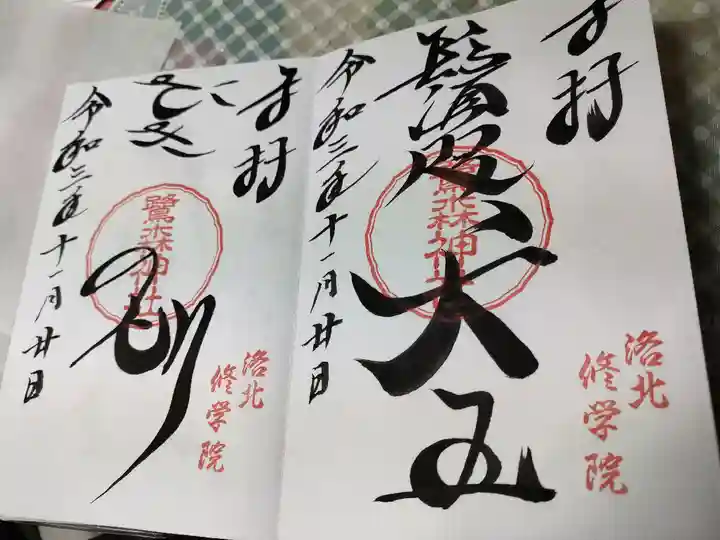 奉拝
鷺森神社
令和三年十一月廿日
洛北
修学院
奉拝
さぎ
鷺森神社
令和三年十一月廿日
洛北
修学院